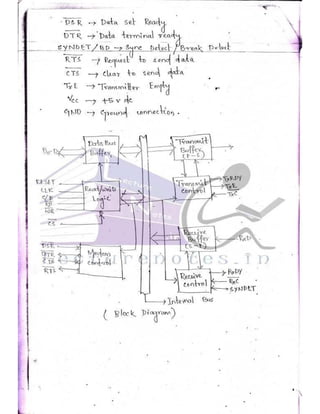 DSR → Data set Ready
DTR → Data terminal ready
SYNDET / BD → Sync Detect / Break Detect
RTS → Request to send data
CTS → Clear to send data
TxE → Transmitter Empty
Vcc → +5 v dc
GND → Ground connection.
Data Bus
Buffer
Transmit
Buffer
(P-S)
RESET
CLK
Read/write
Logic
CS
Transmit
control
TxRDY
TxE
TxC
Receive
Buffer
RxD
DSR
DTR
CTS
RTS
Modem
control
Receive
control
RxRDY
RxC
SYNDET
→ Internal Bus
( Block Diagram )
lecturenotes.in